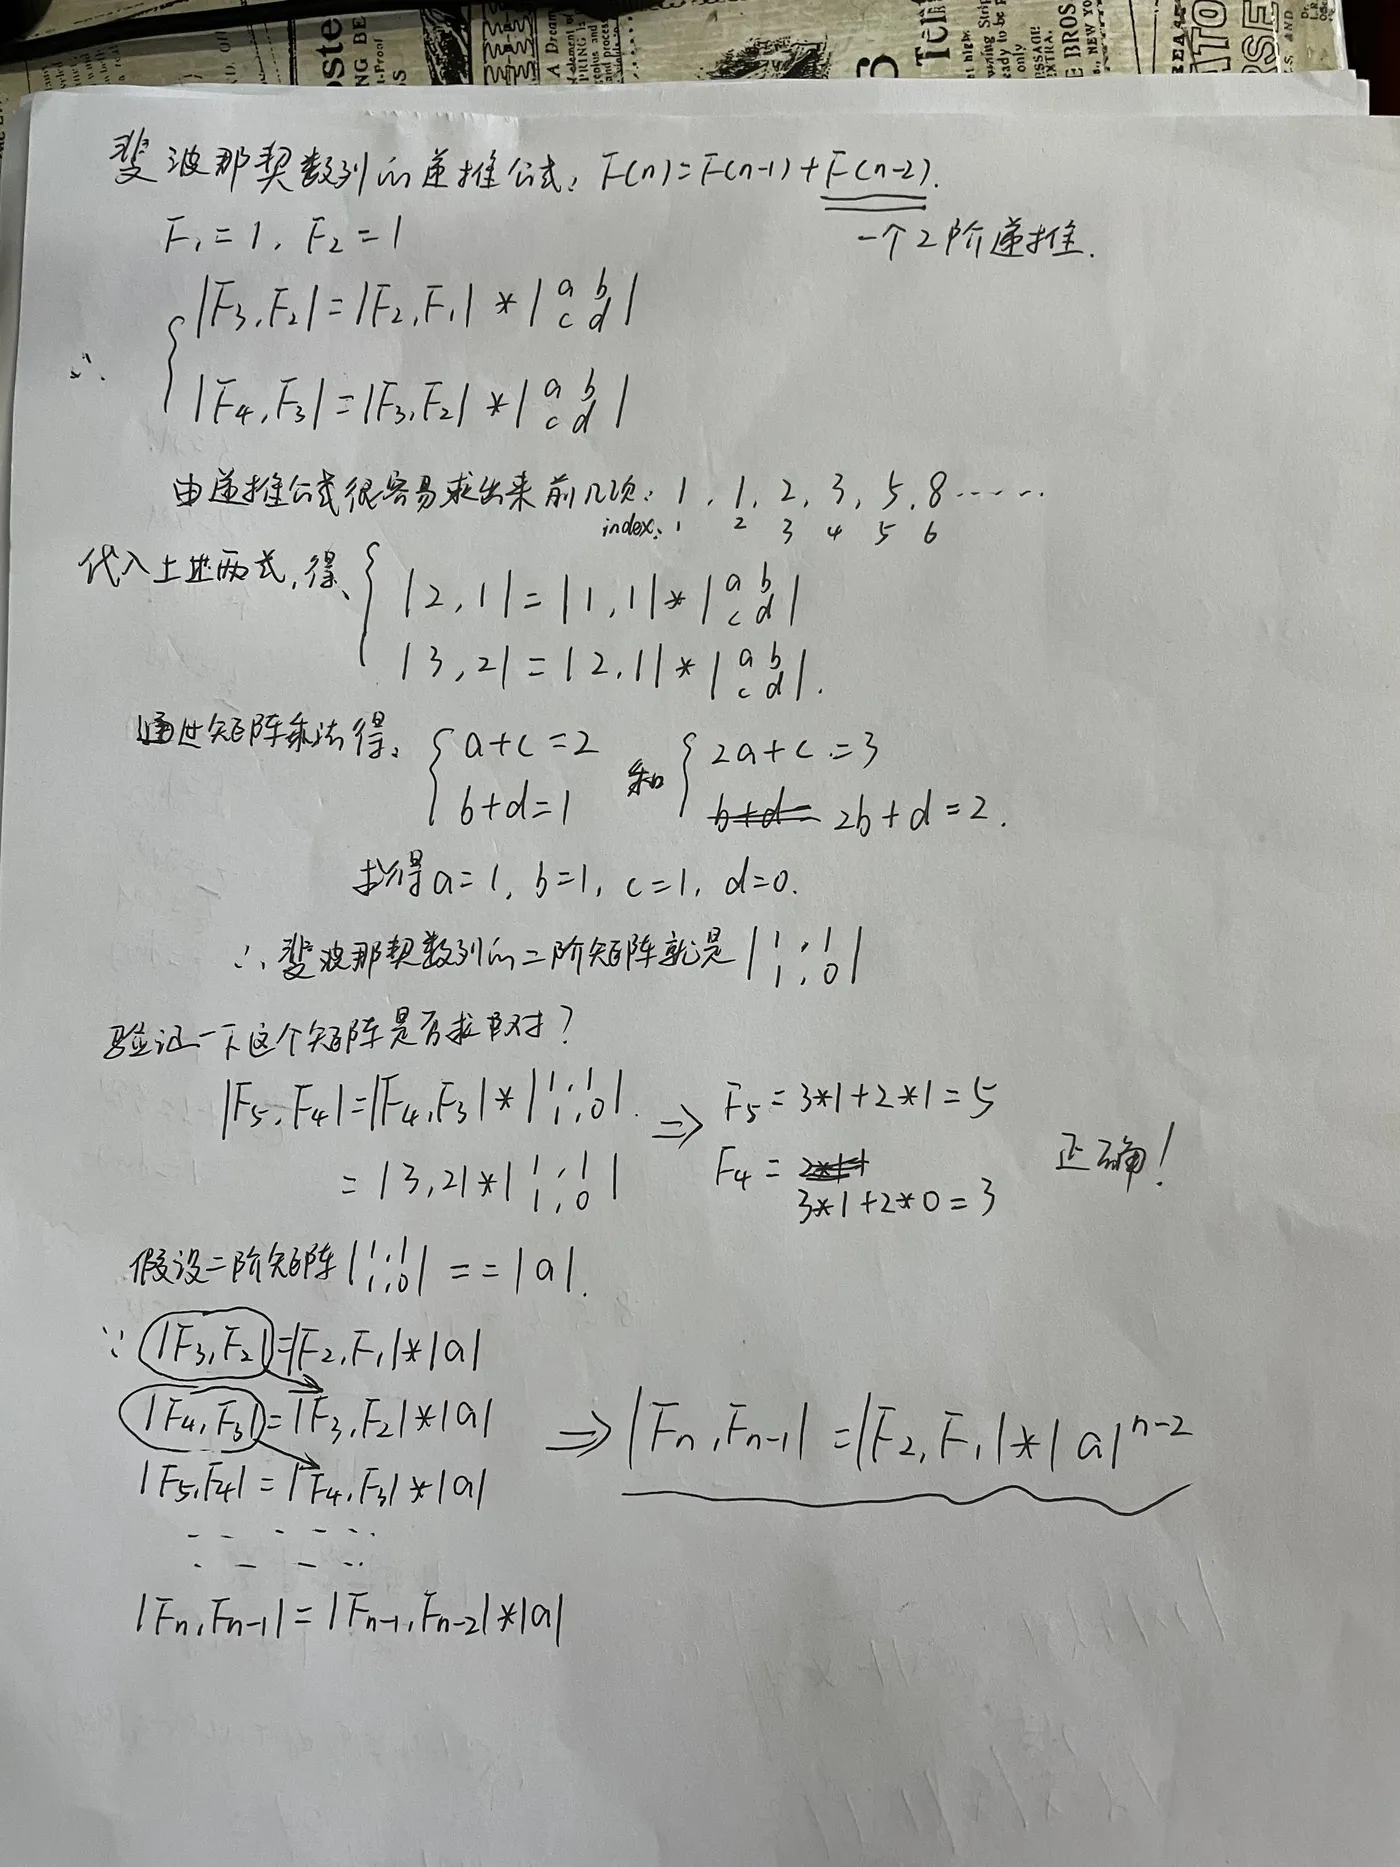 斐波那契数列的递推公式: F(n)=F(n-1)+F(n-2).
F₁=1, F₂=1
一个2阶递推.
∴ { |F₃,F₂|=|F₂,F₁| * | a b
c d |
|F₄,F₃|=|F₃,F₂| * | a b
c d |
由递推公式很容易求出来前几项: 1, 1, 2, 3, 5, 8······
index: 1 2 3 4 5 6
代入上述两式,得: { |2,1| = |1,1| * | a b
c d |
|3,2| = |2,1| * | a b
c d |.
通过矩阵乘法得: { a+c=2 和 { 2a+c=3
b+d=1 b+d= 2b+d=2.
求得 a=1, b=1, c=1, d=0.
∴ 斐波那契数列的二阶矩阵就是 | 1,1
1,0 |
验证一下这个矩阵是否求的对?
|F₅,F₄|=|F₄,F₃| * | 1,1
1,0 |. ⇒ F₅ = 3*1+2*1=5
= |3,2| * | 1,1
1,0 | F₄ = 2*1+
3*1+2*0=3
正确!
假设二阶矩阵 | 1,1
1,0 | == |a|.
∵ |F₃,F₂|=|F₂,F₁|*|a|
|F₄,F₃|=|F₃,F₂|*|a| ⇒ |Fn,Fn-1| =|F₂,F₁|*|a|ⁿ⁻²
|F₅,F₄| = |F₄,F₃|*|a|
|Fn,Fn-1|=|Fn-1,Fn-2|*|a|